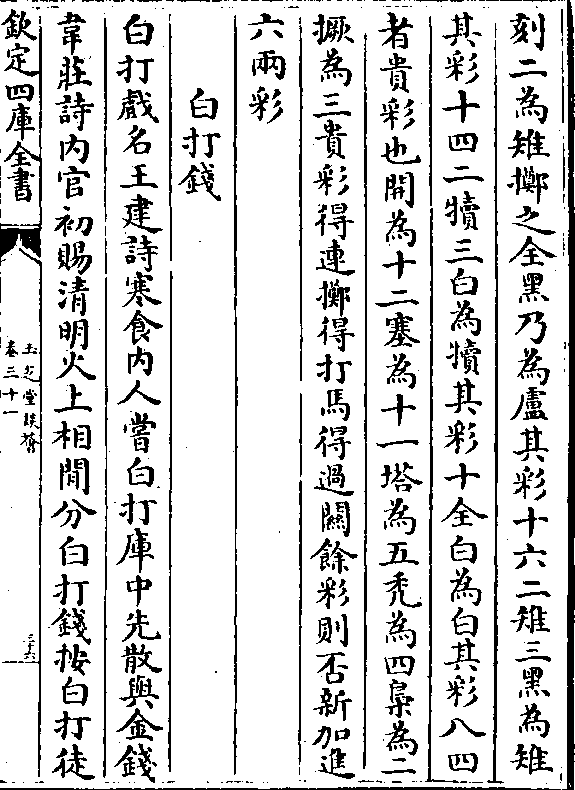 刻二為雉擲之全黑乃為盧其彩十六二雉三黑為雉
其彩十四二犢三白為犢其彩十全白為白其彩八四
者貴彩也開為十二塞為十一塔為五秃為四梟為二
撅為三貴彩得連擲得打馬得過關餘彩則否新加進
六兩彩
白打錢
白打戲名王建詩寒食内人嘗白打庫中先散與金錢
韋莊詩内官初賜清明火上相閒分白打錢按白打徒
欽定四庫全書
玉芝堂談薈
卷三十一
三十六